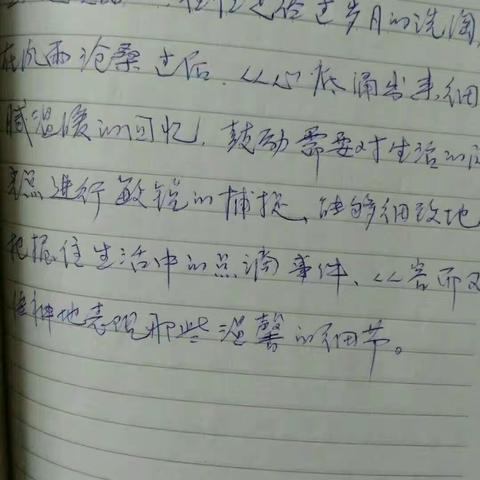 往往是经过岁月的洗淘
在风雨沧桑过后,从心底涌出来细
腻温暖的回忆,鼓动需要对生活的
进行敏锐的捕捉、能够细致地
把握住生活中的点滴事件、从容而又
传神地表现那些温馨的细节。